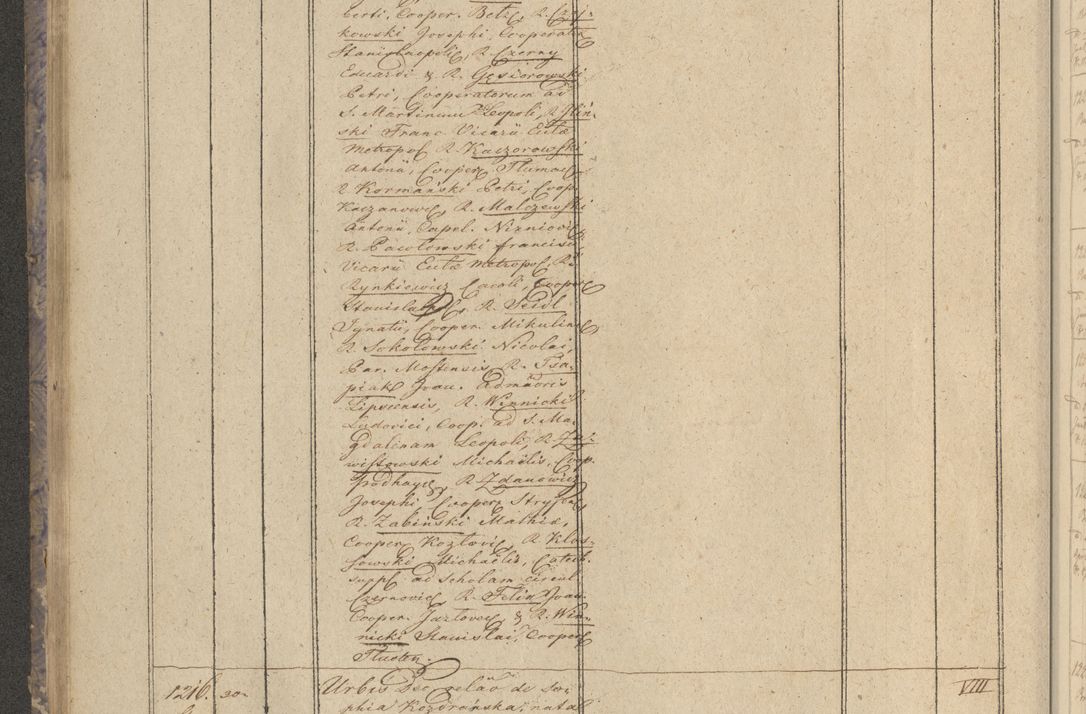 berti, Cooper. Betz, R. Czaj-
kowski Josephi, Cooperator
Stanislaopoli, R. Czerny
Eduardi & R. Gęsiorowski
Petri, Cooperatorum ad
S. Martinum Leopoli, R. Jliń-
ski Franc Vicarii Eccłae
Metropol R. Kaczorowski
Antonii, Cooper Tłumac
R. Kormański Petri, Coop.
Koczanovic, R. Malczewski
Antonii, Capel. Nizniovic
R. Pawłowski Francisci
Vicarii Eccłae Metropol, R.
Rynkiewicz Caroli, Cooper
Stanislaopol, R. Seidl
Ignatii, Cooper. Mikulinc
R. Sokołowski Nicolai,
Par. Mostensis, R. Tsa-
piak Joan. Admoris
Lipicensis, R. Winnicki
Ludovici, Coop. ad S. Ma-
gdalenam Leopoli, R.
wistowski Michaelis, Coop.
Podhayc, R. Zdanowicz
Josephi Cooper Stryjen,
R. Żabiński Mathiae,
Cooper Kozłovic, R. Klos-
sowski Michaelis, Catech.
suppl. ad Scholam circul
Czernovic R. Felix Joan.
Cooper. Jazłovec, & R. Win-
nicki Stanislai, Cooper
Tlusten.
1216. 30. Urbis de So- VIII
phia Kozdrańska, natal